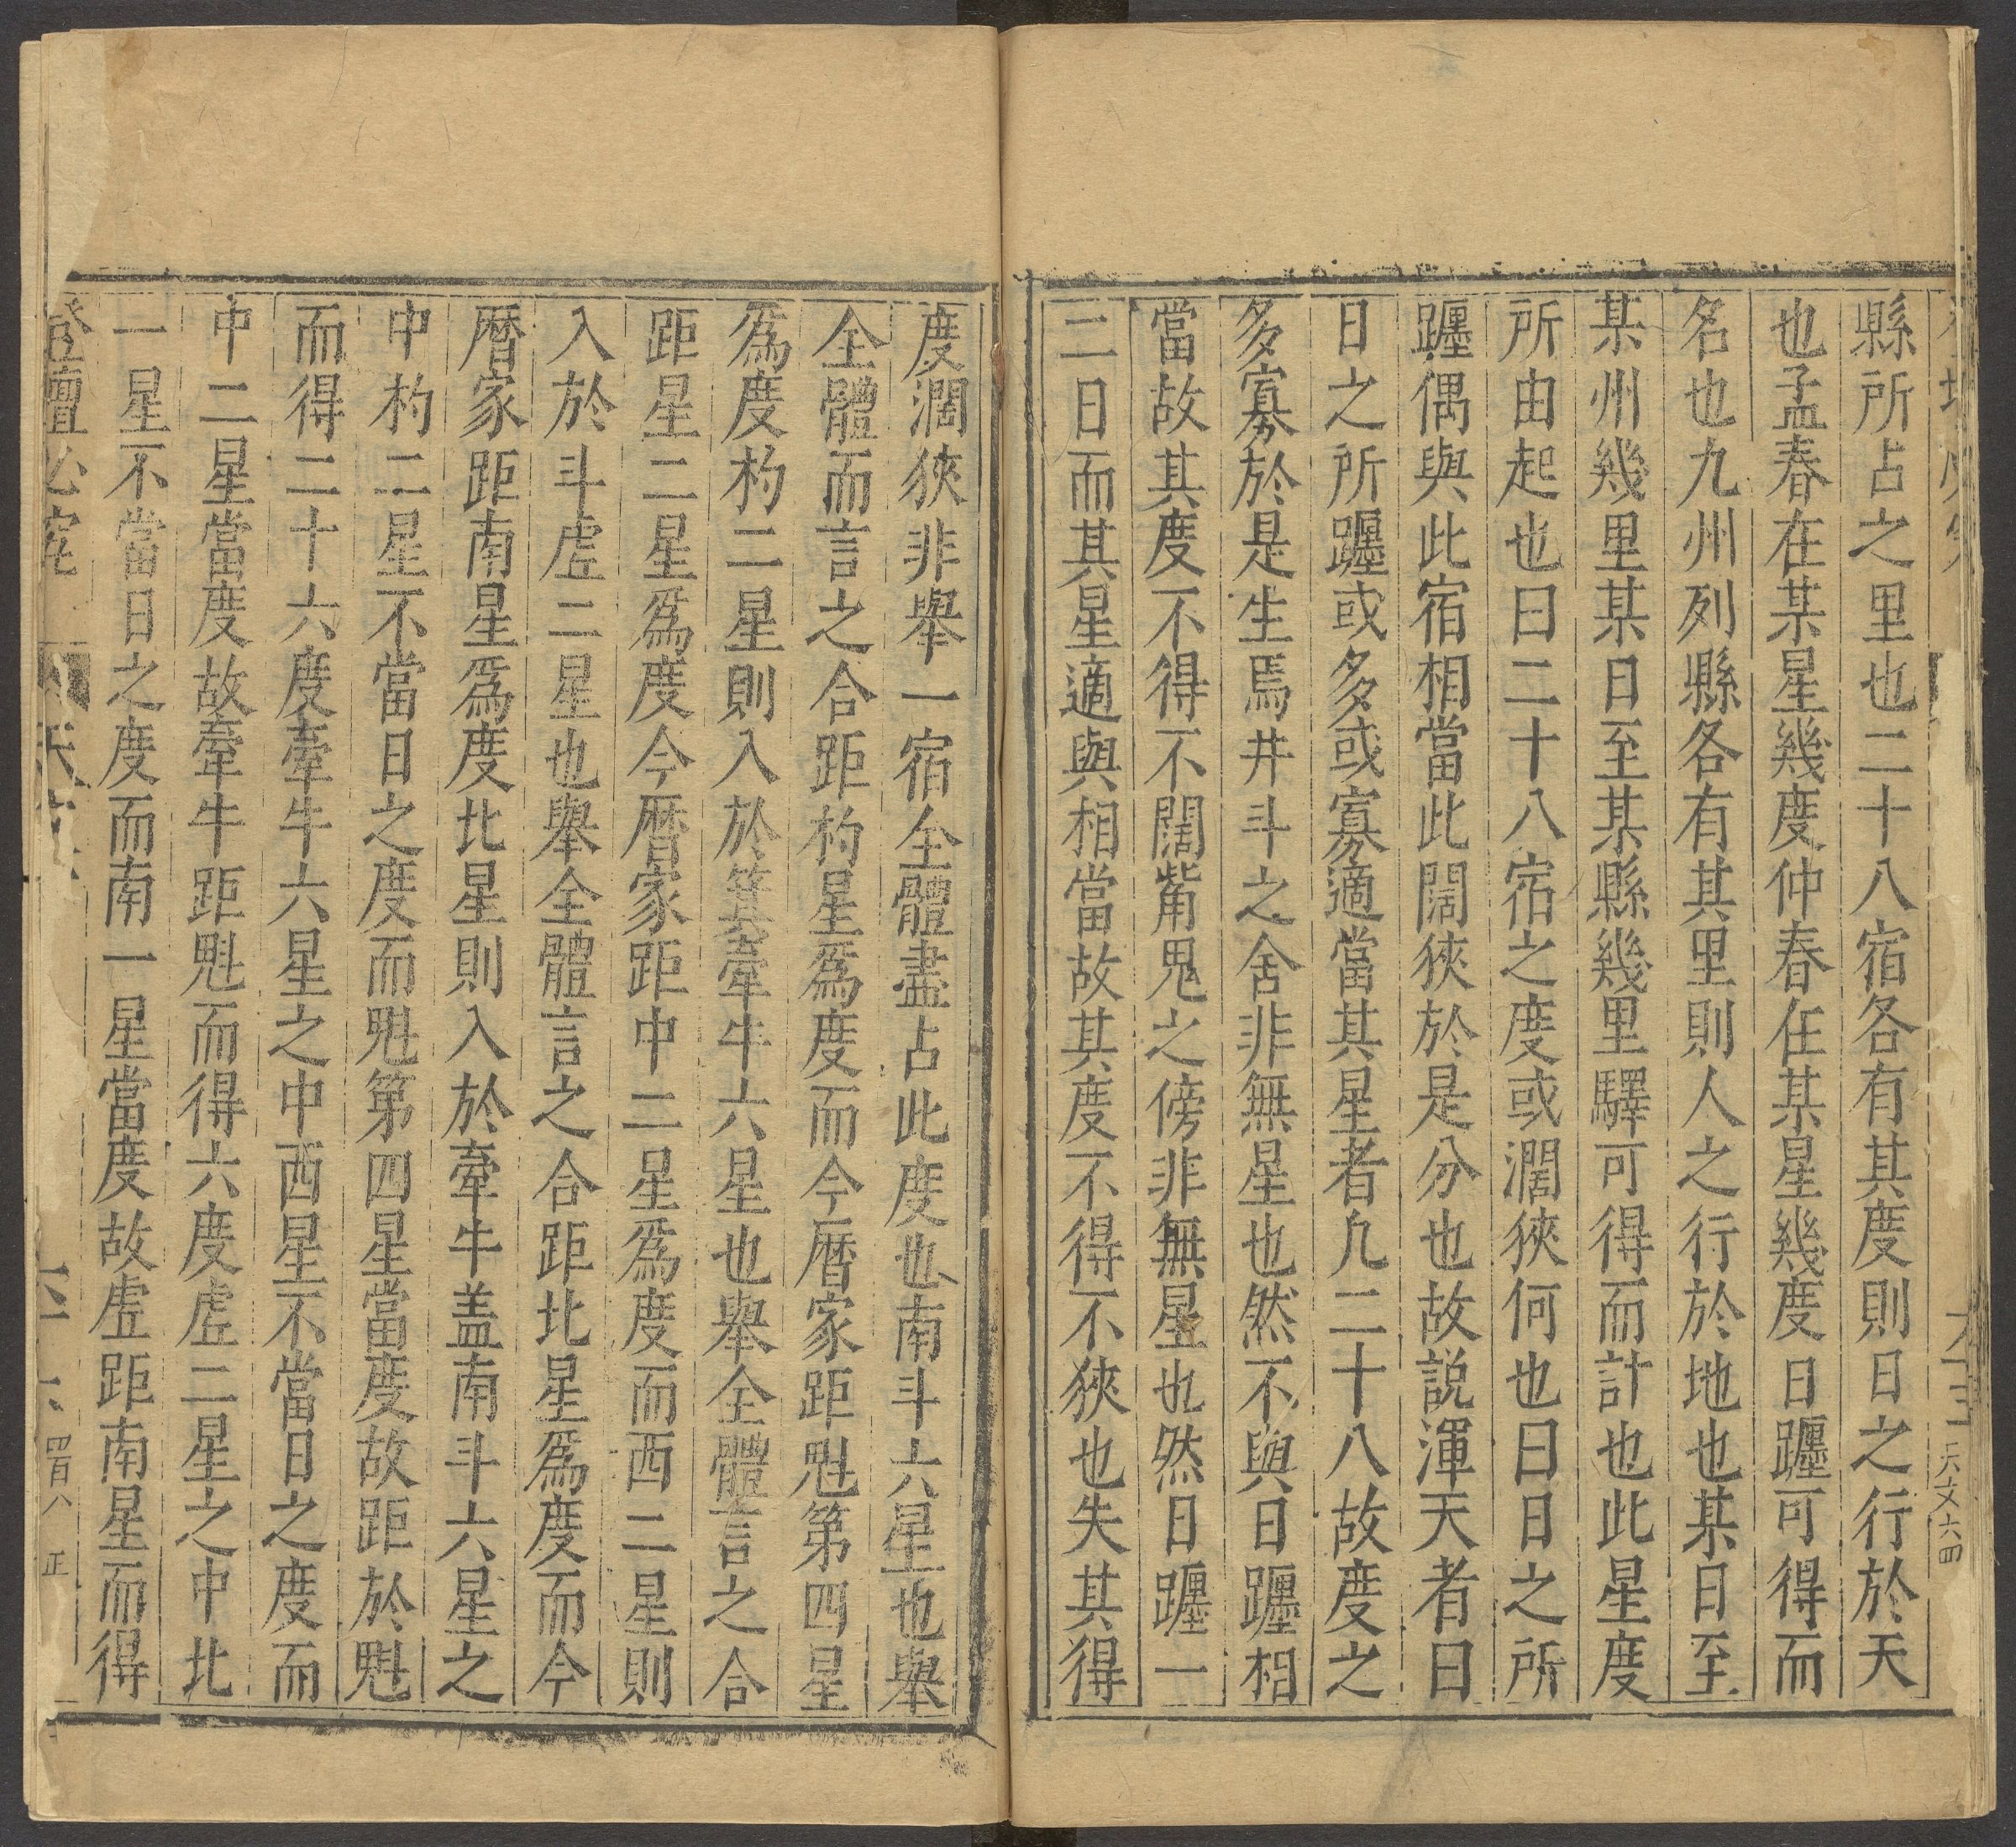 縣所占之里也二十八宿各有其度則日之行於天
也孟春在某星幾度仲春在某星幾度日躔可得而
名也九州列縣各有其里則人之行於地也某日至
某州幾里某日至某縣幾里驛可得而計也此星度
所由起也曰二十八宿之度或濶狹何也曰日之所
躔偶與此宿相當此闊狹於是分也故説渾天者曰
日之所躔或多或寡適當其星者凢二十八故度之
多寡於是生焉井斗之舍非無星也然不與日躔相
當故其度不得不闊觜鬼之傍非無星也然日躔一
二日而其星適與相當故其度不得不狹也失其得
度濶狹非舉一宿全體盡占此度也南斗六星也舉
全體而言之合距杓星爲度而今曆家距魁第四星
爲度杓二星則入於箕牽牛六星也舉全體言之合
距星二星爲度今曆家距中二星爲度而西二星則
入於斗虗二星也舉全體言之合距北星爲度而今
曆家距南星爲度北星則入於牽牛盖南斗六星之
中杓二星不當日之度而魁第四星當度故距於魁
而得二十六度牽牛六星之中西星不當日之度而
中二星當度故牽牛距魁而得六度虗二星之中北
一星不當日之度而南一星當度故虗距南星而得
登壇必究
天文六四
四百八 正